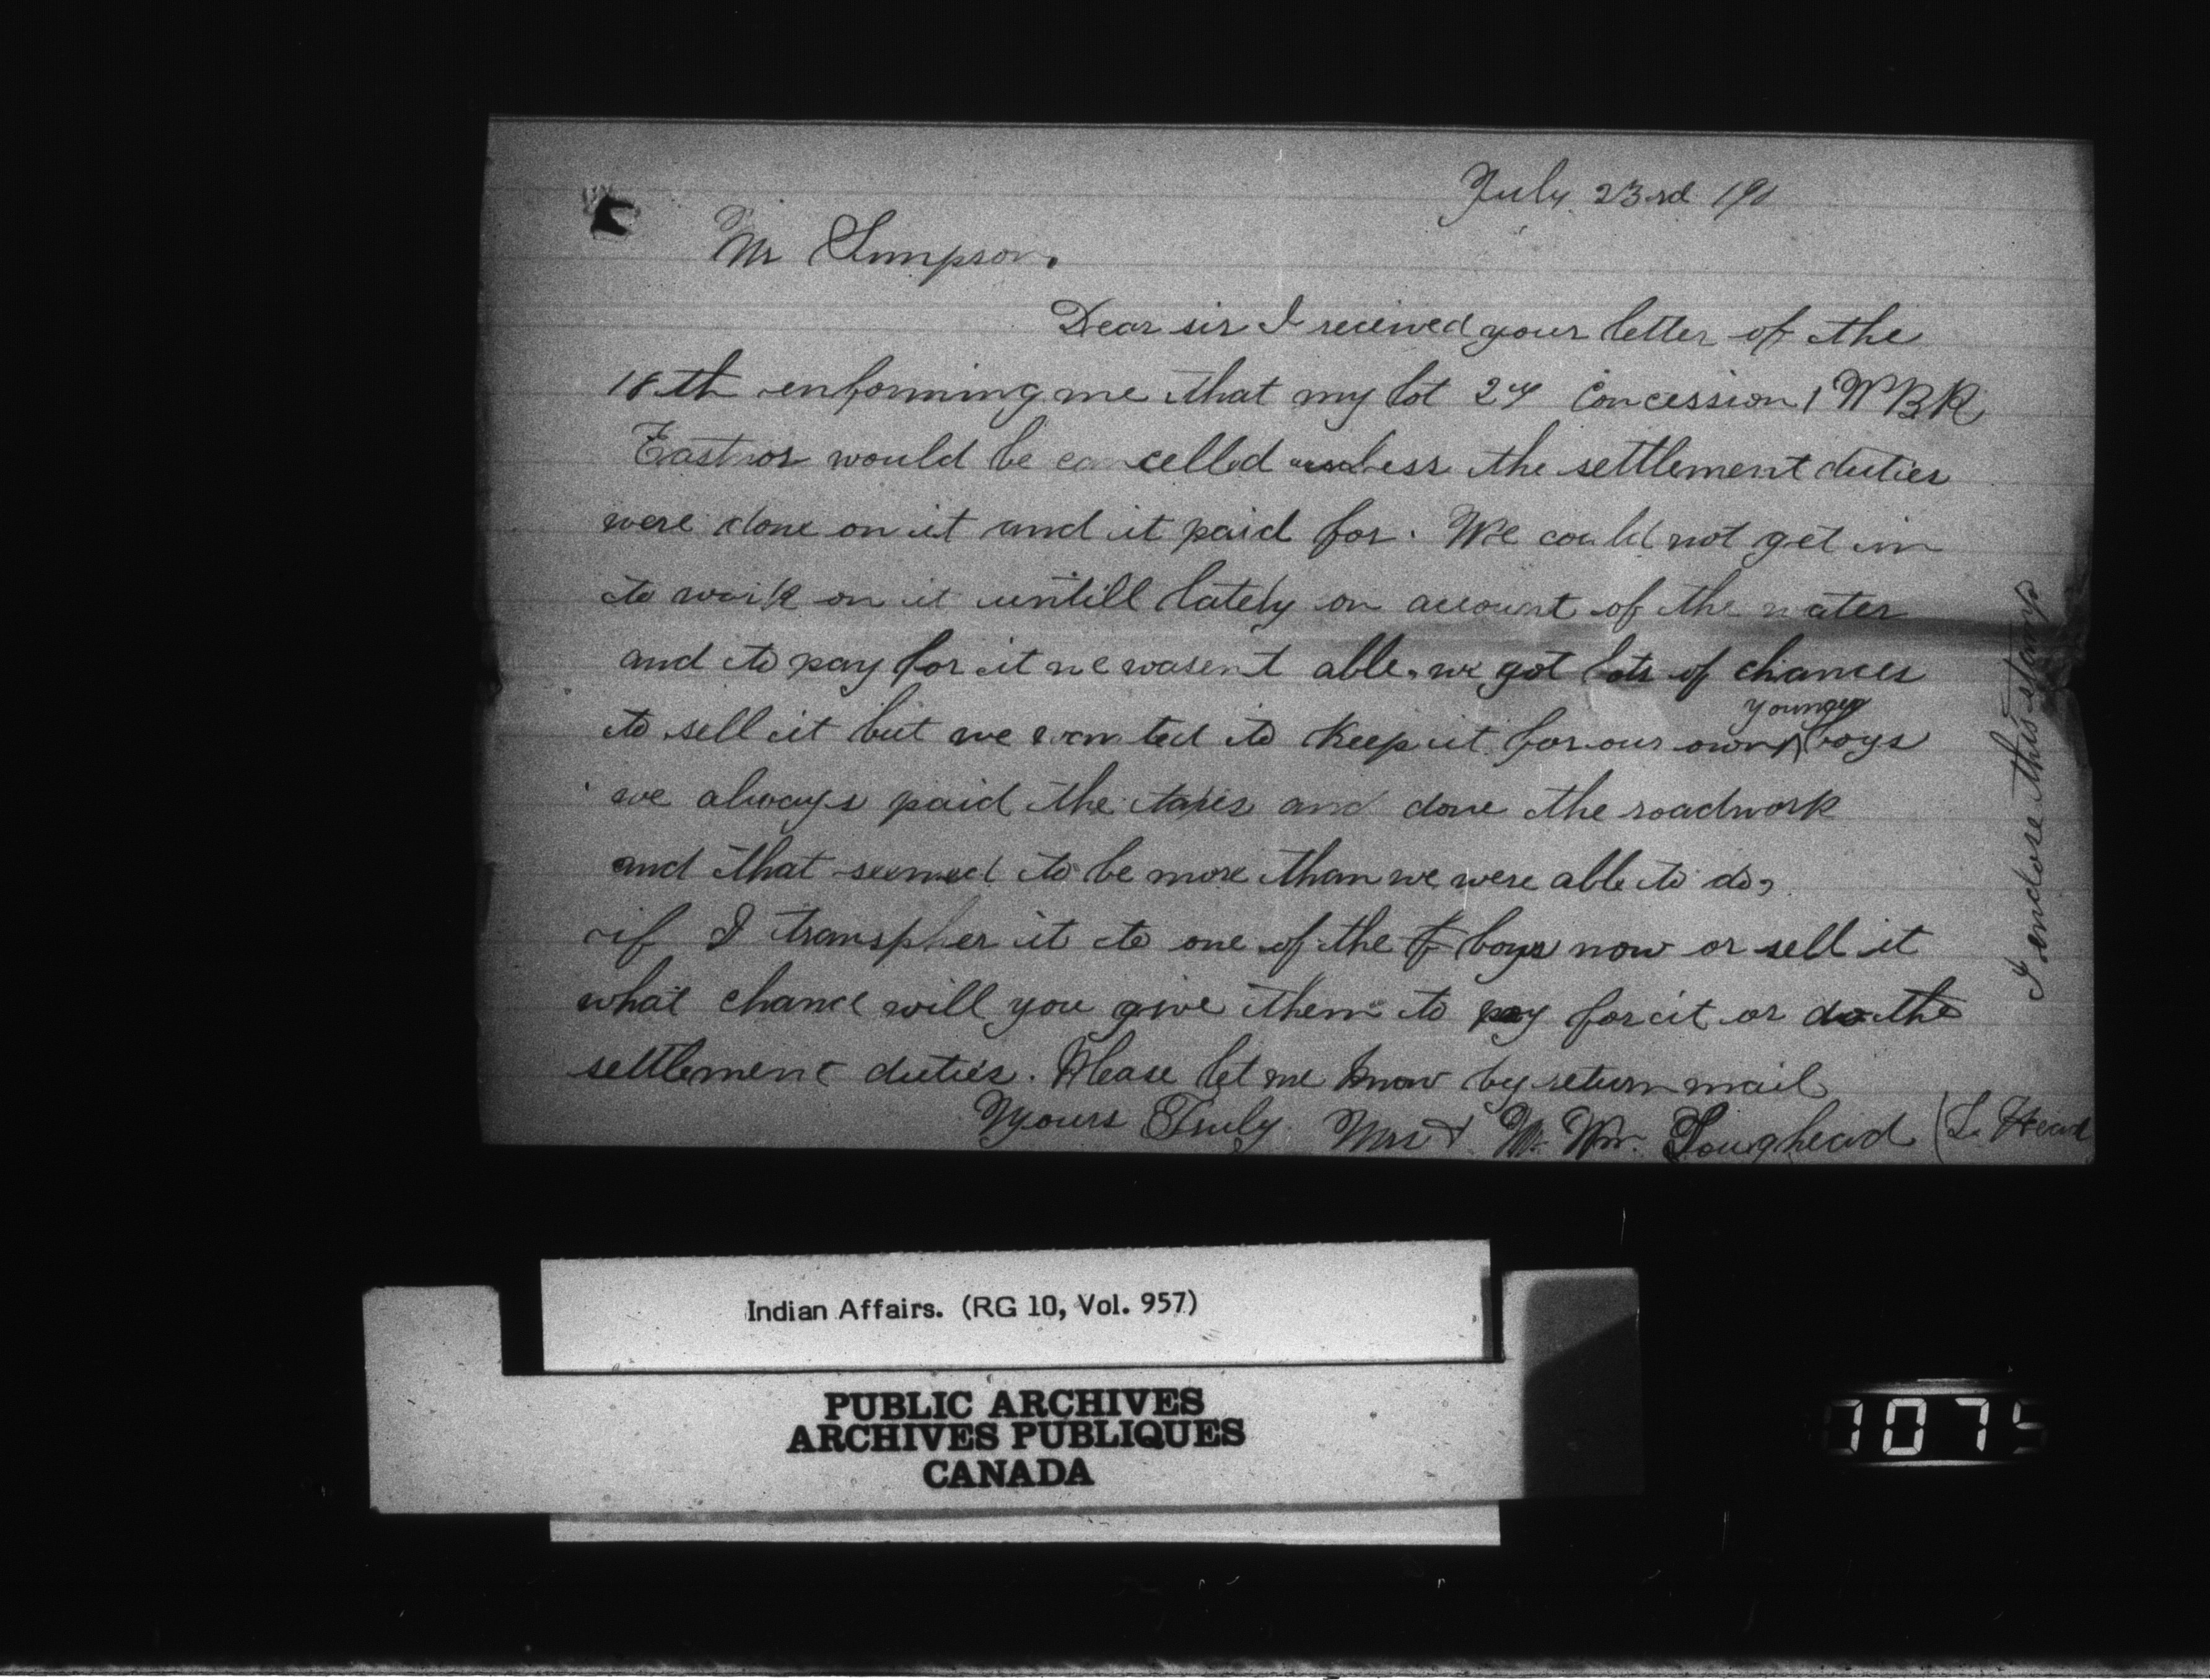 July 23rd 190
Mr Simpson.
Dear sir I recieved your letter of the
18th enforming me that my lot 24 Concession 1 W B R
Eastnor would be cancelled unless the settlement duties
were done on it and it paid for. We could not get in
to work on it untill lately on account of the water
and to pay for it we wasent able. we got lots of chances
to sell it but we wanted to keep it for our own younger boys
we always paid the taxes and done the roadwork
and that seemed to be more than we were able to do,
if I transpher it to one of the boys now or sell it
what chance will you give them to pay for it or do the
settlement duties. Please let me know by return mail
Yours Truly. Mrs & Mr Wm. Loughead (L. Head
I enclose this stamp
Indian Affairs. (RG 10, Vol. 957)
PUBLIC ARCHIVES
ARCHIVES PUBLIQUES
CANADA
1075